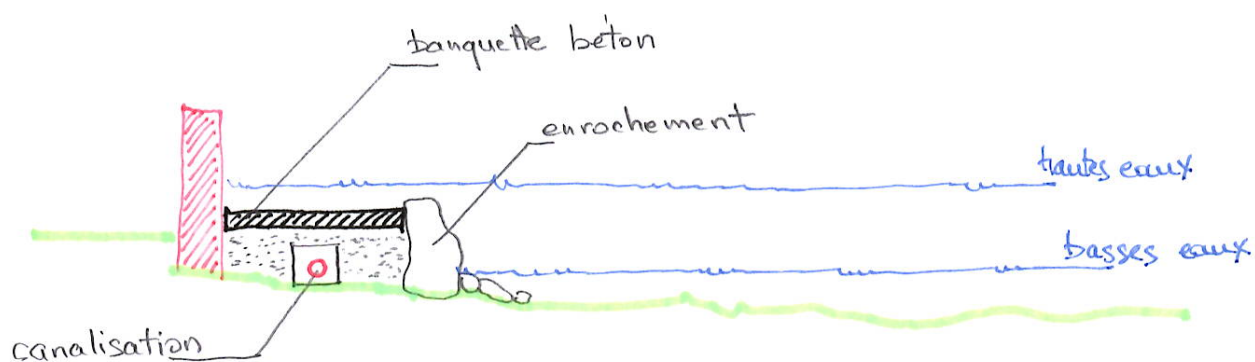 banquette béton
enrochement
hautes eaux
basses eaux
canalisation